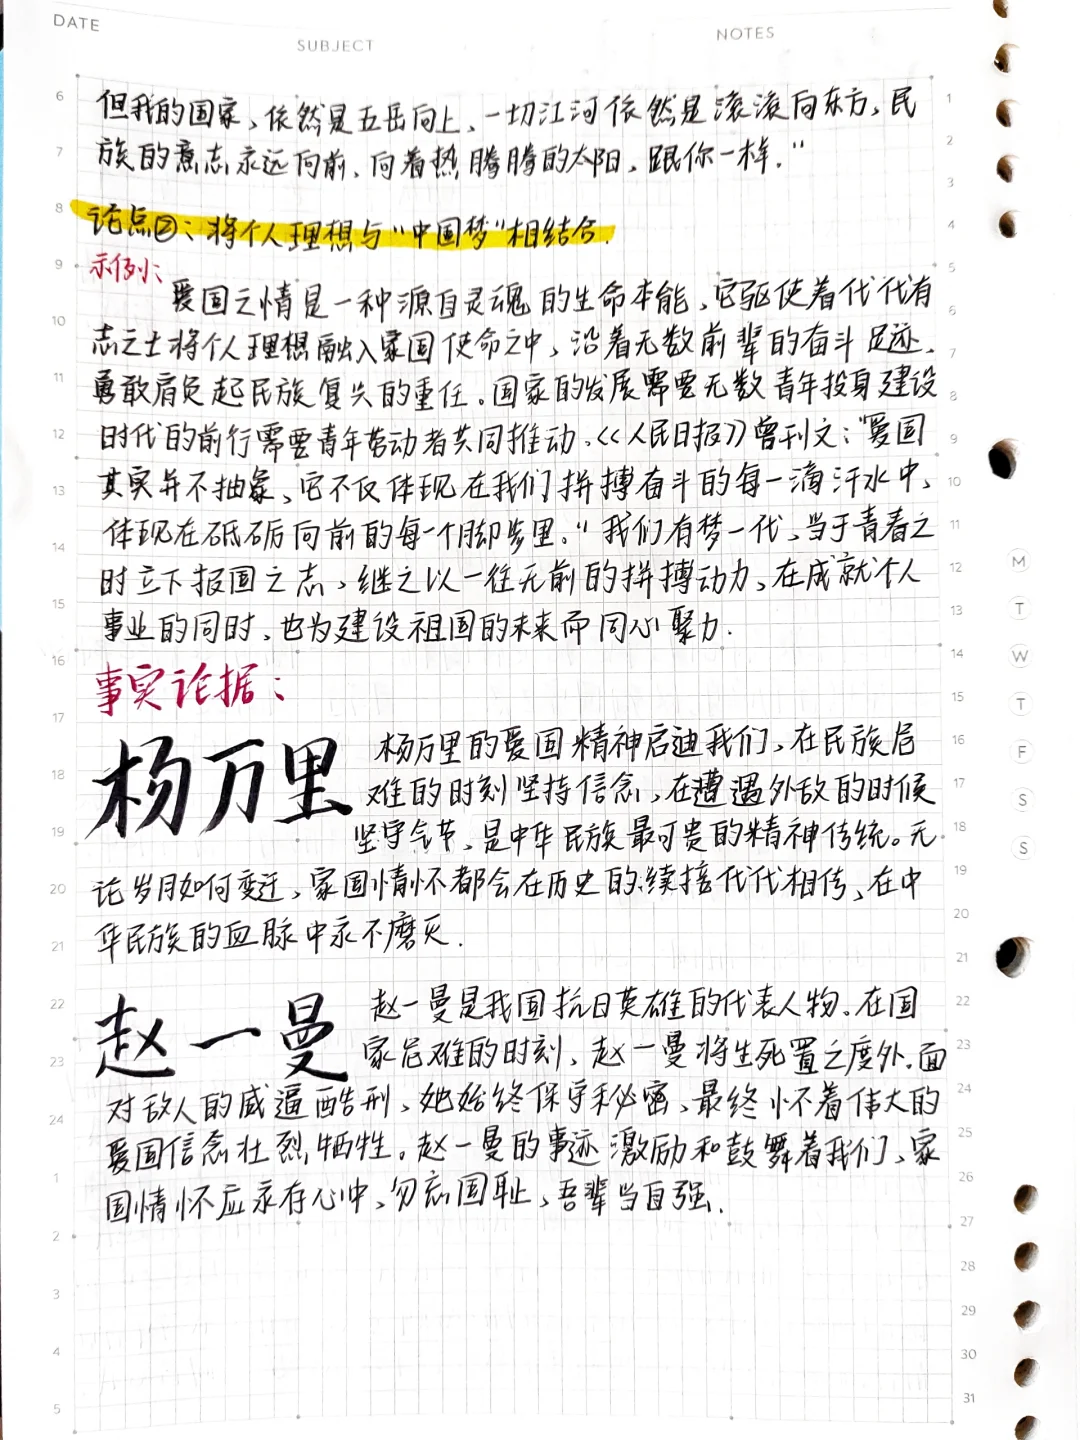 DATE
SUBJECT
NOTES
但我的国家、依然是五岳向上、一切江河依然是滚滚向东方、民
族的意志永远向前、向着热腾腾的太阳、跟你一样."
论点②:将个人理想与"中国梦"相结合.
示例:
爱国之情是一种源自灵魂的生命本能、它驱使着代代有
志之士将个人理想融入家国使命之中、沿着无数前辈的奋斗足迹、
勇敢肩负起民族复兴的重任。国家的发展需要无数青年投身建设
时代的前行需要青年劳动者共同推动.《人民日报》曾刊文:"爱国
其实并不抽象、它不仅体现在我们拼搏奋斗的每一滴汗水中、
体现在砥砺向前的每一个脚步里."我们有梦一代、当于青春之
时立下报国之志、继之以一往无前的拼搏动力、在成就个人
事业的同时、也为建设祖国的未来而同心聚力.
事实论据:
杨万里
杨万里的爱国精神启迪我们、在民族危
难的时刻坚持信念、在遭遇外敌的时候
坚守气节、是中华民族最可贵的精神传统。无
论岁月如何变迁、家国情怀都会在历史的续接代代相传、在中
华民族的血脉中永不磨灭.
赵一曼
赵一曼是我国抗日英雄的代表人物.在国
家危难的时刻、赵一曼将生死置之度外.面
对敌人的威逼酷刑、她始终保守秘密、最终怀着伟大的
爱国信念壮烈牺牲。赵一曼的事迹激励和鼓舞着我们、家
国情怀应永存心中、勿忘国耻、吾辈当自强.
6
7
8
9
10
11
12
13
14
15
16
17
18
19
20
21
22
23
24
1
2
3
4
5
1
2
3
4
5
6
7
8
9
10
11
12
13
14
15
16
17
18
19
20
21
22
23
24
25
26
27
28
29
30
31
M
T
W
T
F
S
S